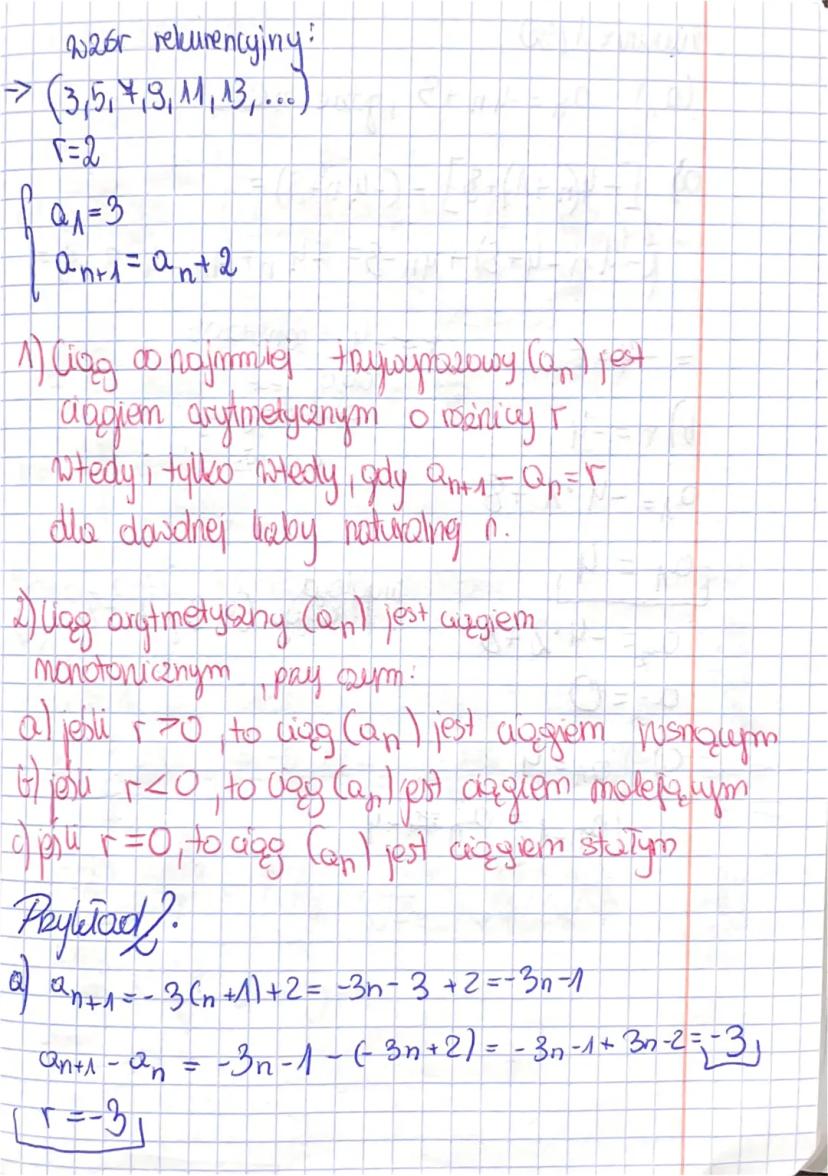 wzór rekurencyjny:
→ (3,5,7,9,11,13,...)
r=2
{ a₁=3
aₙ₊₁=aₙ+2
1) Ciąg co najmniej trzywyrazowy (aₙ) jest
ciągiem arytmetycznym o różnicy r
wtedy i tylko wtedy, gdy aₙ₊₁-aₙ=r
dla dowolnej liczby naturalnej n.
2) Ciąg arytmetyczny (aₙ) jest ciągiem
monotonicznym, przy czym:
a) jeśli r>0, to ciąg (aₙ) jest ciągiem rosnącym
b) jeśli r<0, to ciąg (aₙ) jest ciągiem malejącym
c) jeśli r=0, to ciąg (aₙ) jest ciągiem stałym
Przykład 2.
a) aₙ₊₁=-3(n+1)+2=-3n-3+2=-3n-1
aₙ₊₁-aₙ=-3n-1-(-3n+2)=-3n-1+3n-2=-3
r=-3